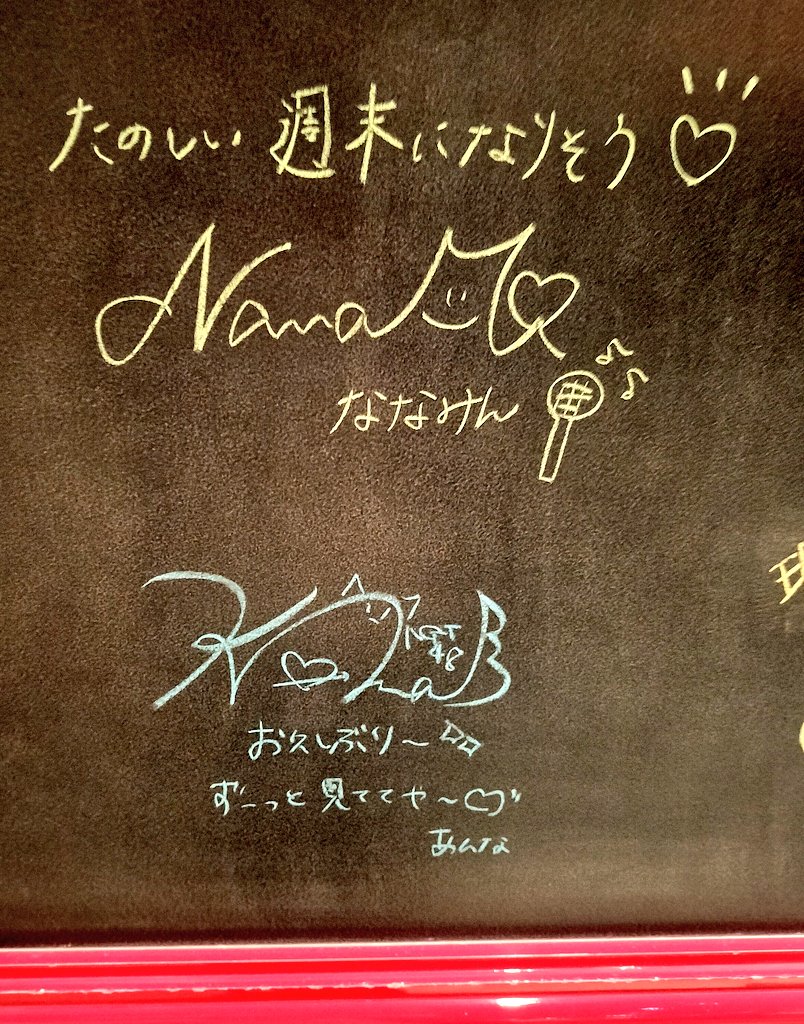 たのしい週末になりそう♡
Nana
ななみん
NGT
48
お久しぶり〜
ずーっと見ててや〜♡
あんな